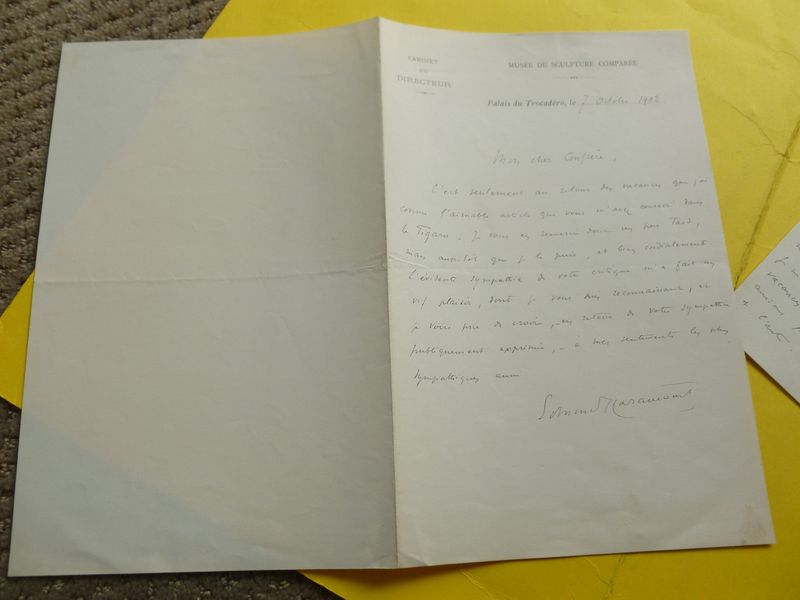 CABINET
DU
DIRECTEUR
MUSÉE DE SCULPTURE COMPARÉE
Palais du Trocadéro, le 7 Octobre 1902
Mon cher Confrère,
C'est seulement au retour des vacances que j'ai
connu l'aimable article que vous m'avez consacré dans
le Figaro. Je vous en remercie donc un peu tard,
mais aussitôt que je le puis, et bien cordialement.
L'évidente sympathie de votre critique m'a fait un
vif plaisir, dont je vous suis reconnaissant, et
je vous prie de croire, - en retour de votre sympathie
publiquement exprimée, - à mes sentiments les plus
sympathiques aussi
vacances